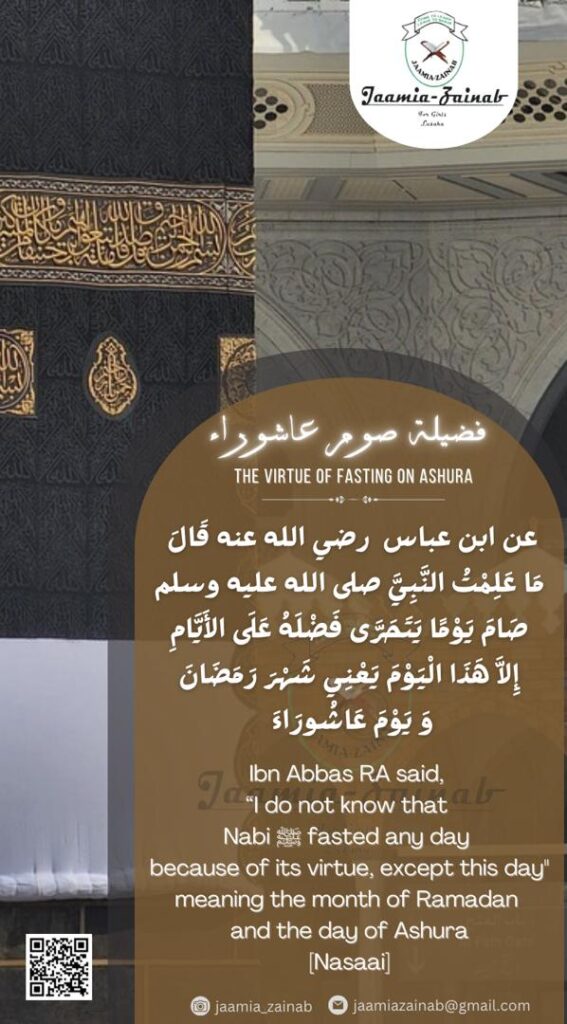 JAAMIA-ZAINAB
Jaamia-Zainab
For Girls
Lusaka
فضيلة صوم عاشوراء
THE VIRTUE OF FASTING ON ASHURA
عن ابن عباس رضي الله عنه قَالَ
مَا عَلِمْتُ النَّبِيَّ صلى الله عليه وسلم
صَامَ يَوْمًا يَتَحَرَّى فَضْلَهُ عَلَى الأَيَّامِ
إِلاَّ هَذَا الْيَوْمَ يَعْنِي شَهْرَ رَمَضَانَ
وَ يَوْمَ عَاشُورَاءَ
Jaamia-Zainab
Ibn Abbas RA said,
“I do not know that
Nabi ﷺ fasted any day
because of its virtue, except this day"
meaning the month of Ramadan
and the day of Ashura
[Nasaai]
jaamia_zainab
jaamiazainab@gmail.com